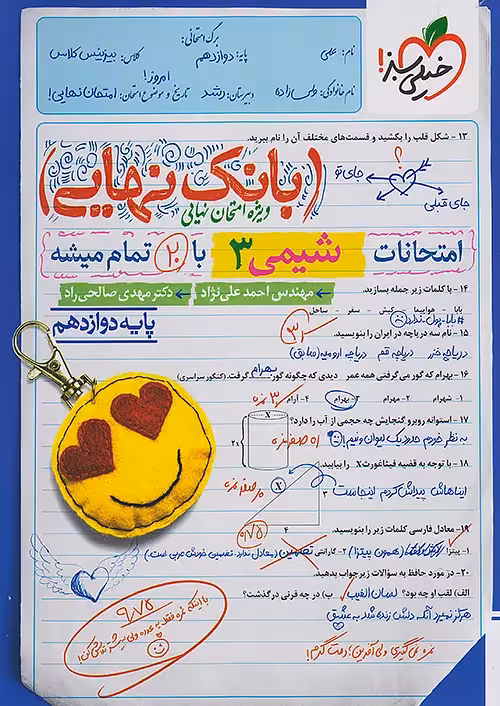 برگ امتحانی:
نام: علی
پایه: دوازدهم
کلاس: بیزینس کلاس
امروز!
نام خانوادگی: ولی‌زاده
دبیرستان: رشد
تاریخ و موضوع امتحان: امتحان نهایی!
خیلی سبز!
۱۳ - شکل قلب را بکشید و قسمت‌های مختلف آن را نام ببرید.
؟
جای تو
جای قبلی
(بانک نهایی)
ویژه امتحان نهایی
امتحانات شیمی ۳ با ۲۰ تمام میشه
مهندس احمد علی‌نژاد
دکتر مهدی صالحی‌راد
پایه دوازدهم
۱۴ - با کلمات زیر جمله بسازید.
بابا - هواپیما - کیش - سفر - ساحل
#بابا-پول-ندارد
۱۵ - نام سه دریاچه در ایران را بنویسید.
دریاچه خزر دریاچه قم دریاچه ارومیه (سابق)
۱۶ - بهرام که گور می‌گرفتی همه عمر دیدی که چگونه گور بهرام گرفت. (کنکور سراسری)
۱- شهرام ۲- مهرام ۳- بهرام ۴- آرام
۱۷ - استوانه روبرو گنجایش چه حجمی از آب را دارد؟
X
2X
به نظر خودم حدود یک لیوان و نیم!
۱۸ - با توجه به قضیه فیثاغورث X را بیابید.
ایناهاش پیداش کردم اینجاست
X
۳
۴
۱۹- معادل فارسی کلمات زیر را بنویسید.
۱- پیتزا (همون پیتزا) ۲- گارانتی تضمین (معادل ندارد. تضمین خودش عربی است)
۲۰- در مورد حافظ به سؤالات زیر جواب بدهید.
الف) لقب او چه بود؟ لسان الغیب ب) در چه قرنی درگذشت؟
هرگز نمیرد آنکه دلش زنده شد به عشق
۹/۷۵
نمره نمی‌گیری ولی آفرین؛ دمت گرم!